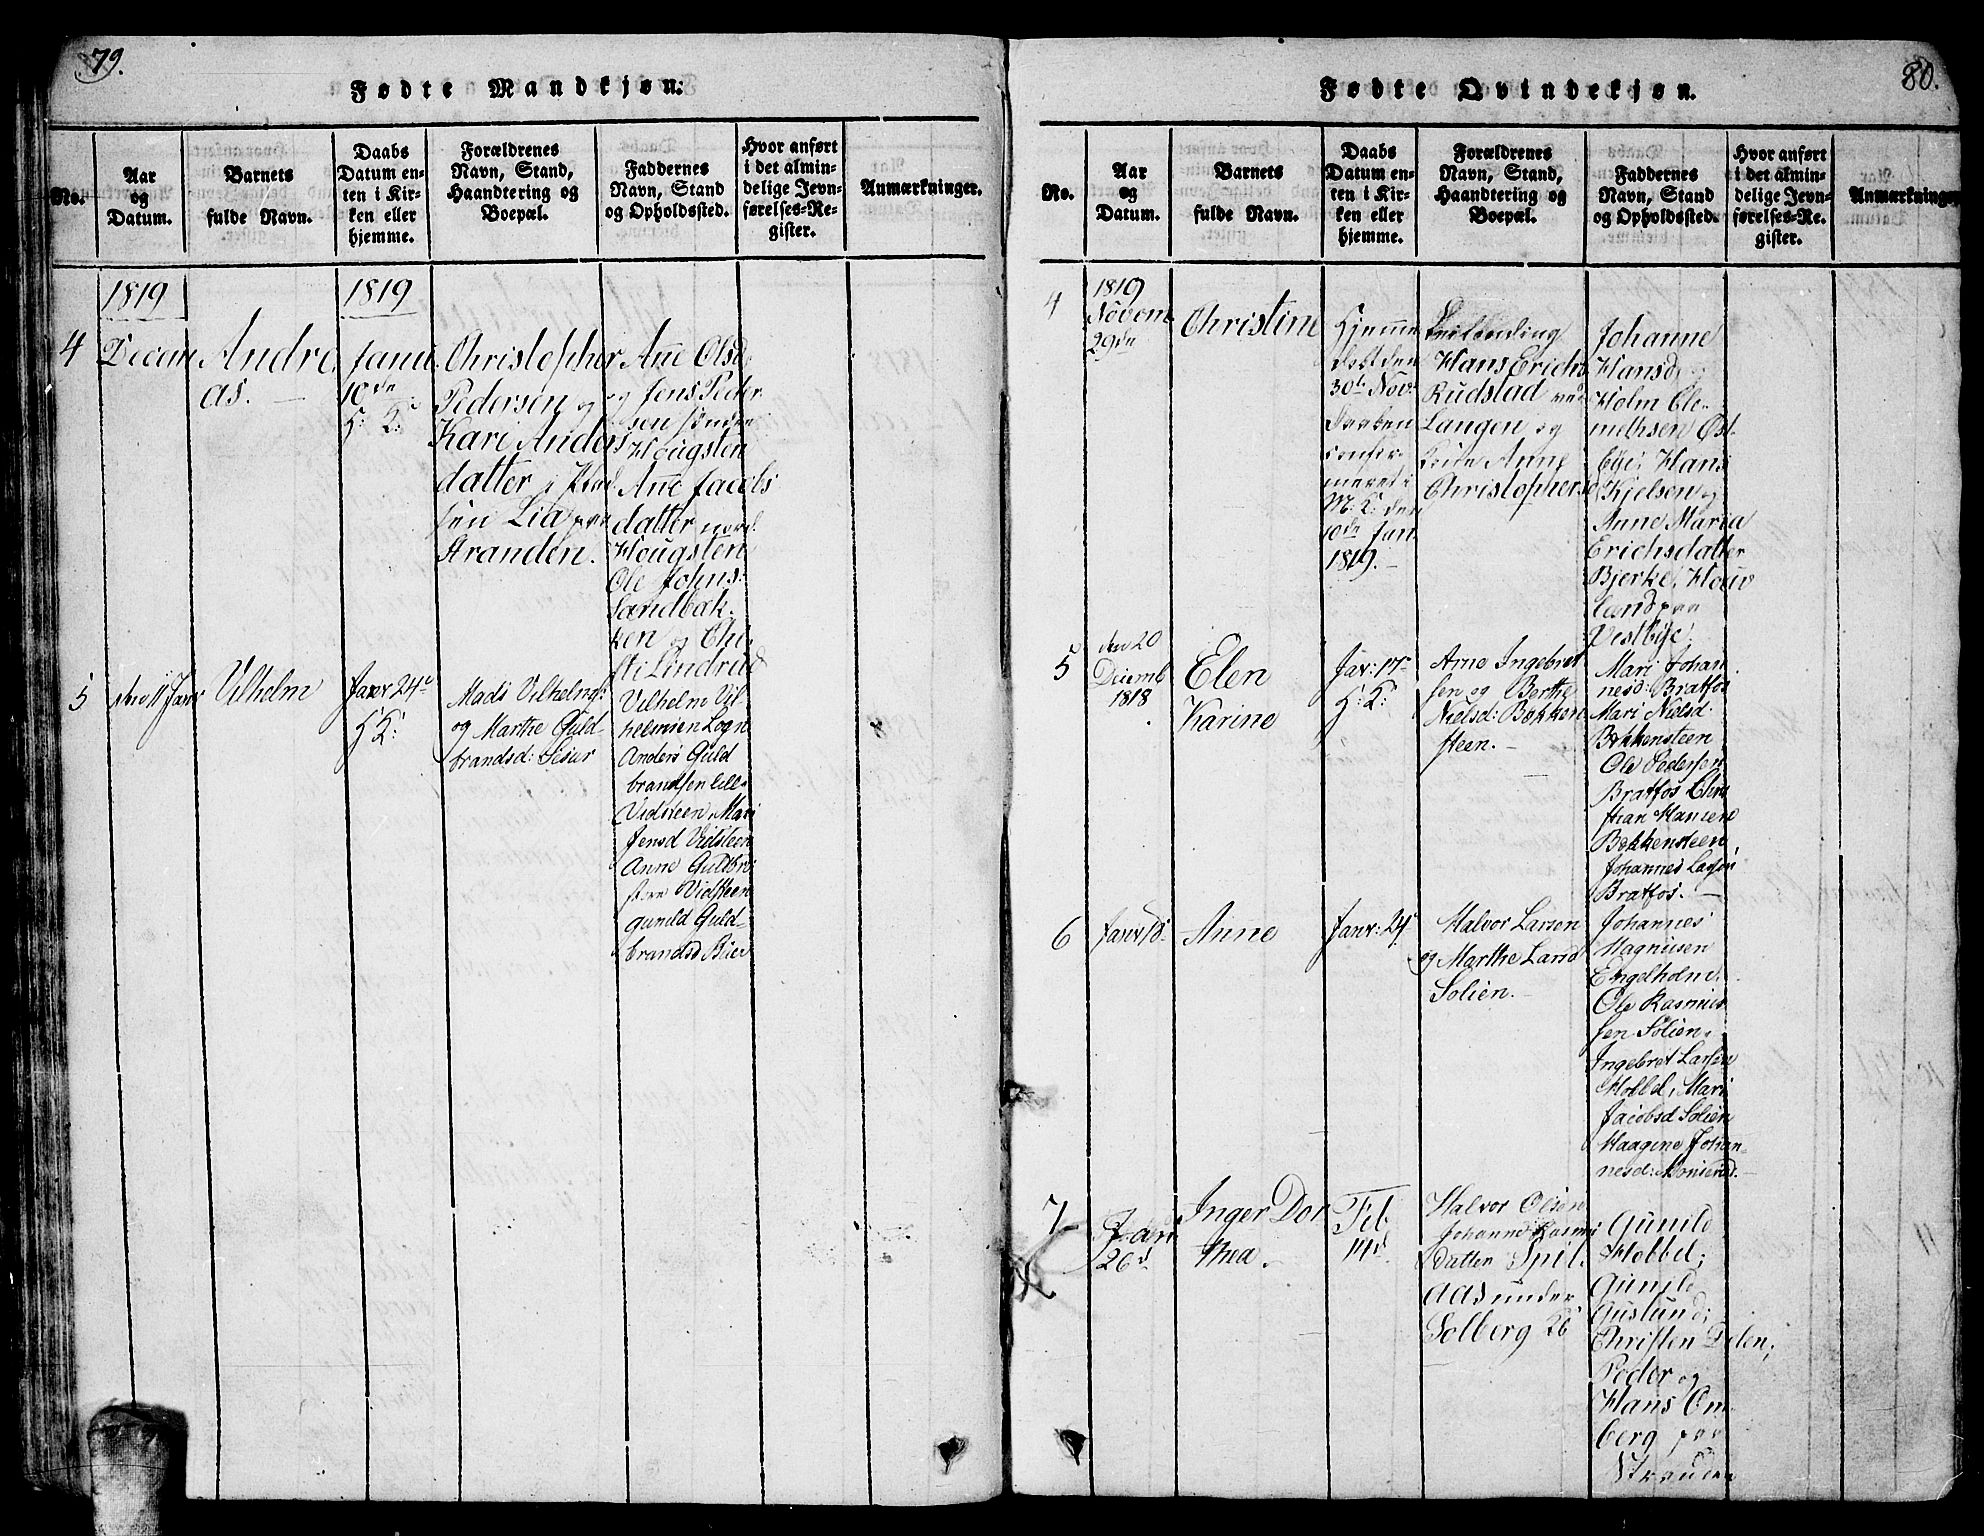 79.
Fødte Mandkjøn.
No.
Aar
og
Datum.
Barnets
fulde Navn.
Daabs
Datum en-
ten i Kir-
ken eller
hjemme.
Forældrenes
Navn, Stand,
Haandtering og
Boepæl.
Faddernes
Navn, Stand
og Opholdssted.
Hvor anført
i det almin-
delige Jevn-
førelses-Re-
gister.
Anmærkninger.
1819
1819
4
Decem
Andre
as.
Janu.
10de
H: K:
Christopher
Pedersen og
Kari Anders
datter
Lia paa
Stranden.
Anne Olsd
og Jens Peder
sen søndre
Hougsten
Ane Jacobs
datter nord.
Hougsten
Ole Johns:
Sandbak
ken og Chi
sti Lindrud
5
den 11 Janr
Vilhelm
Janr 24e
H K:
Mads Vilhelms:
og Marthe Guld
brandsd:
Vilhelm Vil-
helmsen Logn
Anders Guld
brandsen Lille
Vidsteen, Mari
Jensd Vidsteen
Anne Guldbr
Vidsteen
Gunild Guld-
brandsd Bier
80.
Fødte Qvindekjøn.
No.
Aar
og
Datum.
Barnets
fulde Navn.
Daabs
Datum en-
ten i Kir-
ken eller
hjemme.
Forældrenes
Navn, Stand,
Haandtering og
Boepæl.
Faddernes
Navn, Stand
og Opholdssted.
Hvor anført
i det almin-
delige Jevn-
førelses-Re-
gister.
Anmærkninger
4
1819
Novem
29de
Christine
Hjemme
døbt den
30te Nov:
Daaben
confir-
meret i
M: K: den
10de Jan
1819.
Hans Erichs
Rudstad ved
Langen og
Anne
Christophers
Johanne
Hansd og
Holm Cle-
methsen Øst
bye, Hans
Kjelsen og
Anne Maria
Erichsdatter
Bjerke, Houv
land paa
Vestbye.
5
den 20
Decemb
1818
Elen
Karine
Jan: 17e
H: K:
Arne Ingebret
sen og Berthe
Nielsd: Bekken
steen.
Mari Johan
nesd: Bratfos
Mari Nielsd:
Bekkensteen
Ole Pedersen
Bratfos Chri
stian Hansen
Bekkensteen
Johannes Larsen
Bratfos.
6
Anne
Janr: 24
Halvor Larsen
og Marthe Larsd
Solien.
Johannes
Magnusen
Engelholm,
Ole Rasmus
sen Solien,
Ingebret Larsen
Hobbel, Mari
Jacobsd Solien
Maagine Johan-
nesd:
7
Janu
26d
Inger Dor
thea.
Feb
14d
Halvor Olsen
Johanne Rasmus
Datter Spil-
aas under
Solberg
Gunild
Hobbel;
Gunild
Guslund;
Christen Delen;
Peder og
Hans Om-
berg paa
Stranden